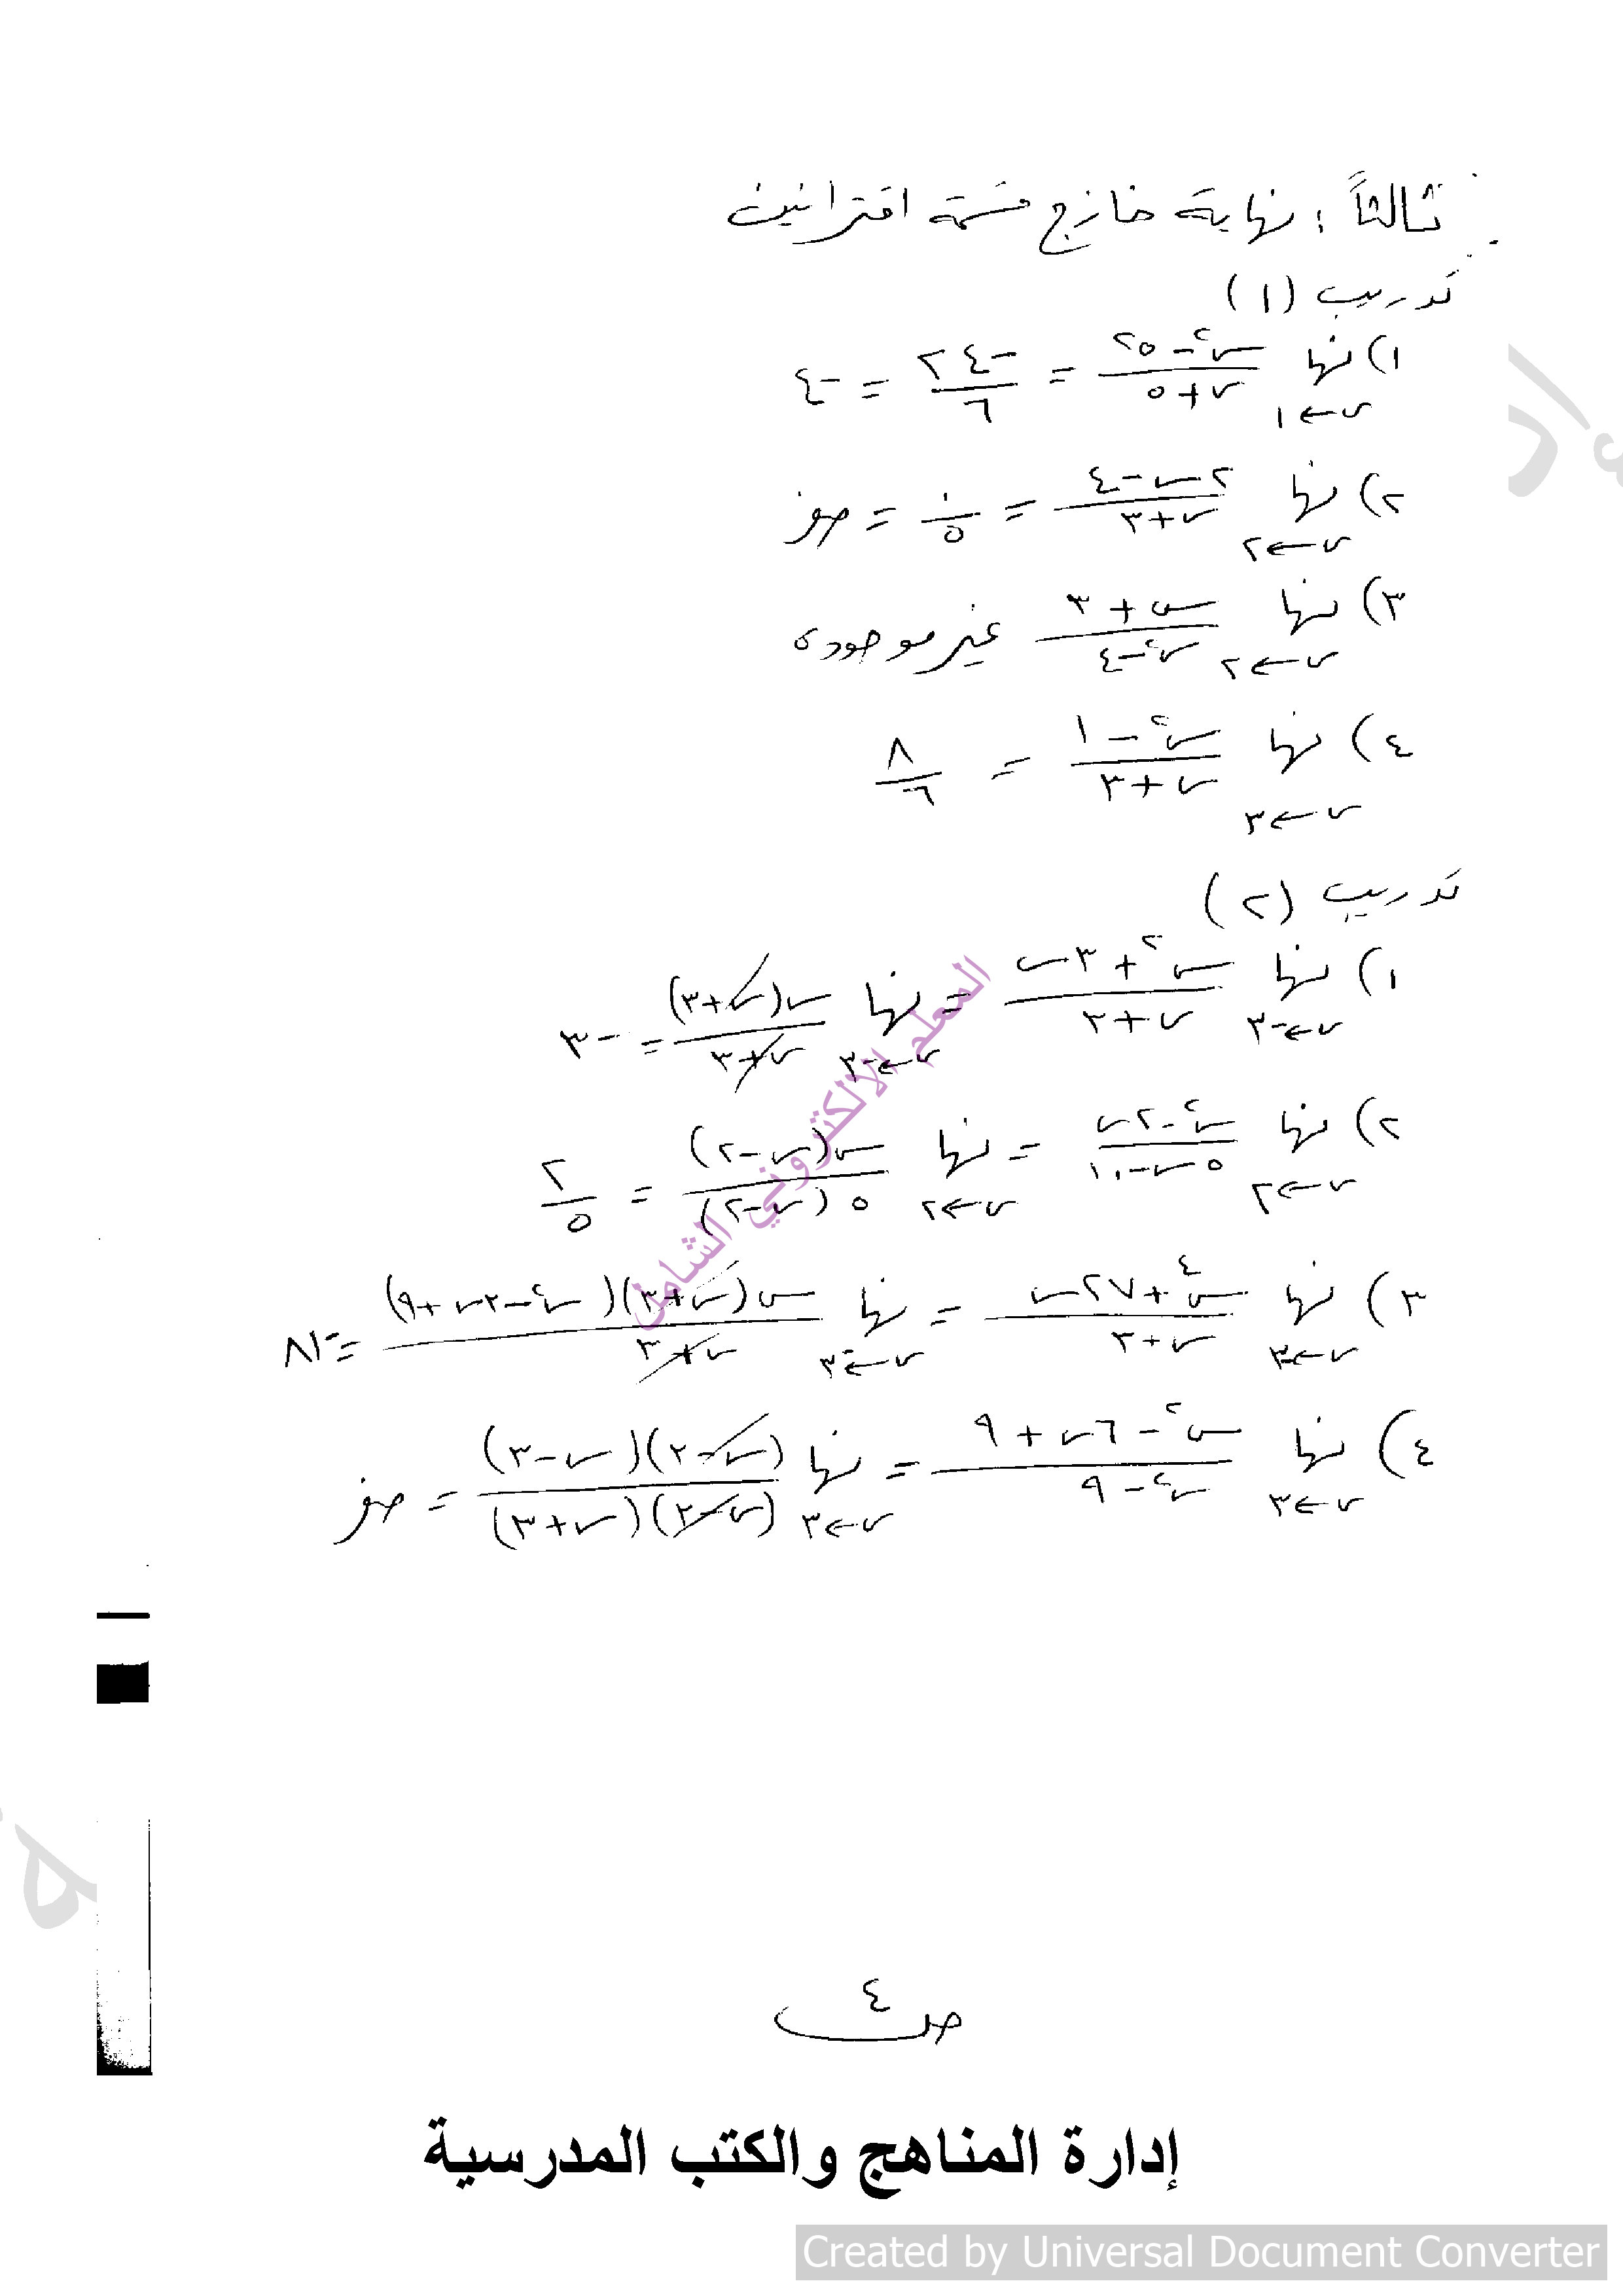 ثالثاً : نهاية خارج قسمة اقترانين
تدريب (١)
١) نها س←١ (س٢ - ٢٥)/(س + ٥) = -٢٤/٦ = -٤
٢) نها س←٢ (٢س - ٤)/(س + ٣) = ٠/٥ = صفر
٣) نها س←٢ (س + ٣)/(س٢ - ٤) غير موجودة
٤) نها س←٣ (س٢ - ١)/(س + ٣) = ٨/٦
تدريب (٢)
١) نها س←-٣ (س٢ + ٣س)/(س + ٣) = نها س←-٣ س(س + ٣)/(س + ٣) = -٣
٢) نها س←٢ (س٢ - ٢س)/(٥س - ١٠) = نها س←٢ س(س - ٢)/٥(س - ٢) = ٢/٥
٣) نها س←-٣ (س٤ + ٢٧س)/(س + ٣) = نها س←-٣ س(س + ٣)(س٢ - ٣س + ٩)/(س + ٣) = -٨١
٤) نها س←٣ (س٢ - ٦س + ٩)/(س٢ - ٩) = نها س←٣ (س - ٣)(س - ٣)/(س - ٣)(س + ٣) = صفر
المعلم الالكتروني الشامل
ص٤
إدارة المناهج والكتب المدرسية
Created by Universal Document Converter